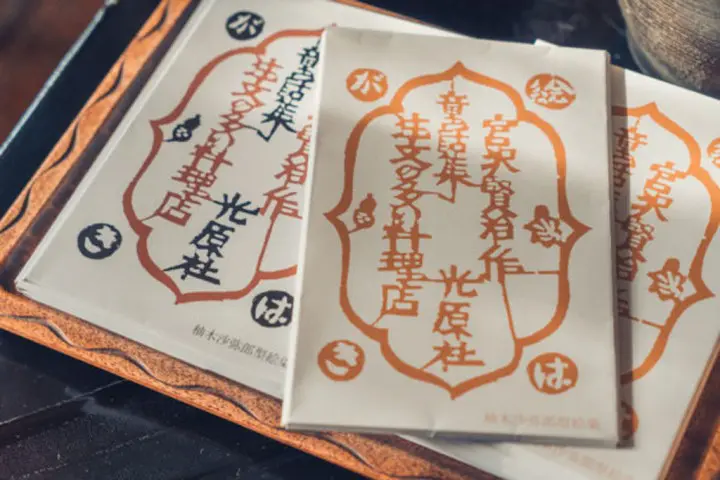 が
賢治作
童話集
注文の多い料理店
光原社
き
は
柚木沙弥郎型絵染
絵
が
宮沢賢治作
童話集
注文の多い料理店
光原社
は
き
柚木沙弥郎型絵染
宮沢賢治
童話